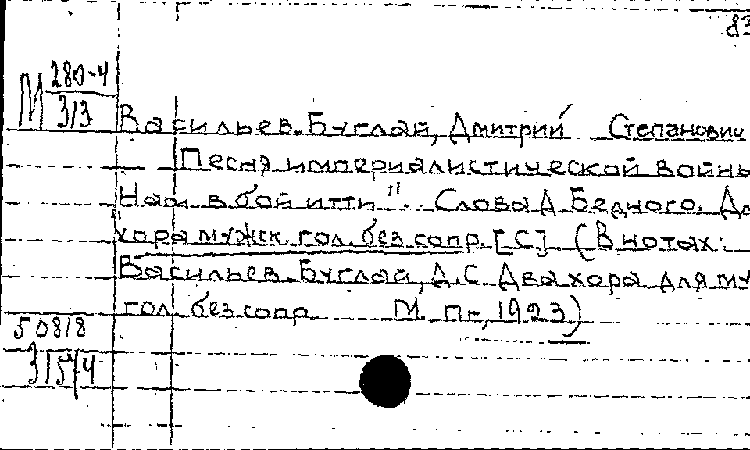 83
М 280-4
313
Васильев-Буглай, Дмитрий Степанович
Песня империалистической войны
Нам в бой итти". Слова Д. Бедного. Дл
хора мужск. гол. без сопр. [С]. (В нотах:
Васильев-Буглай, Д.С. Два хора для му
гол. без сопр. М. Пг., 1923)
50818
315/4